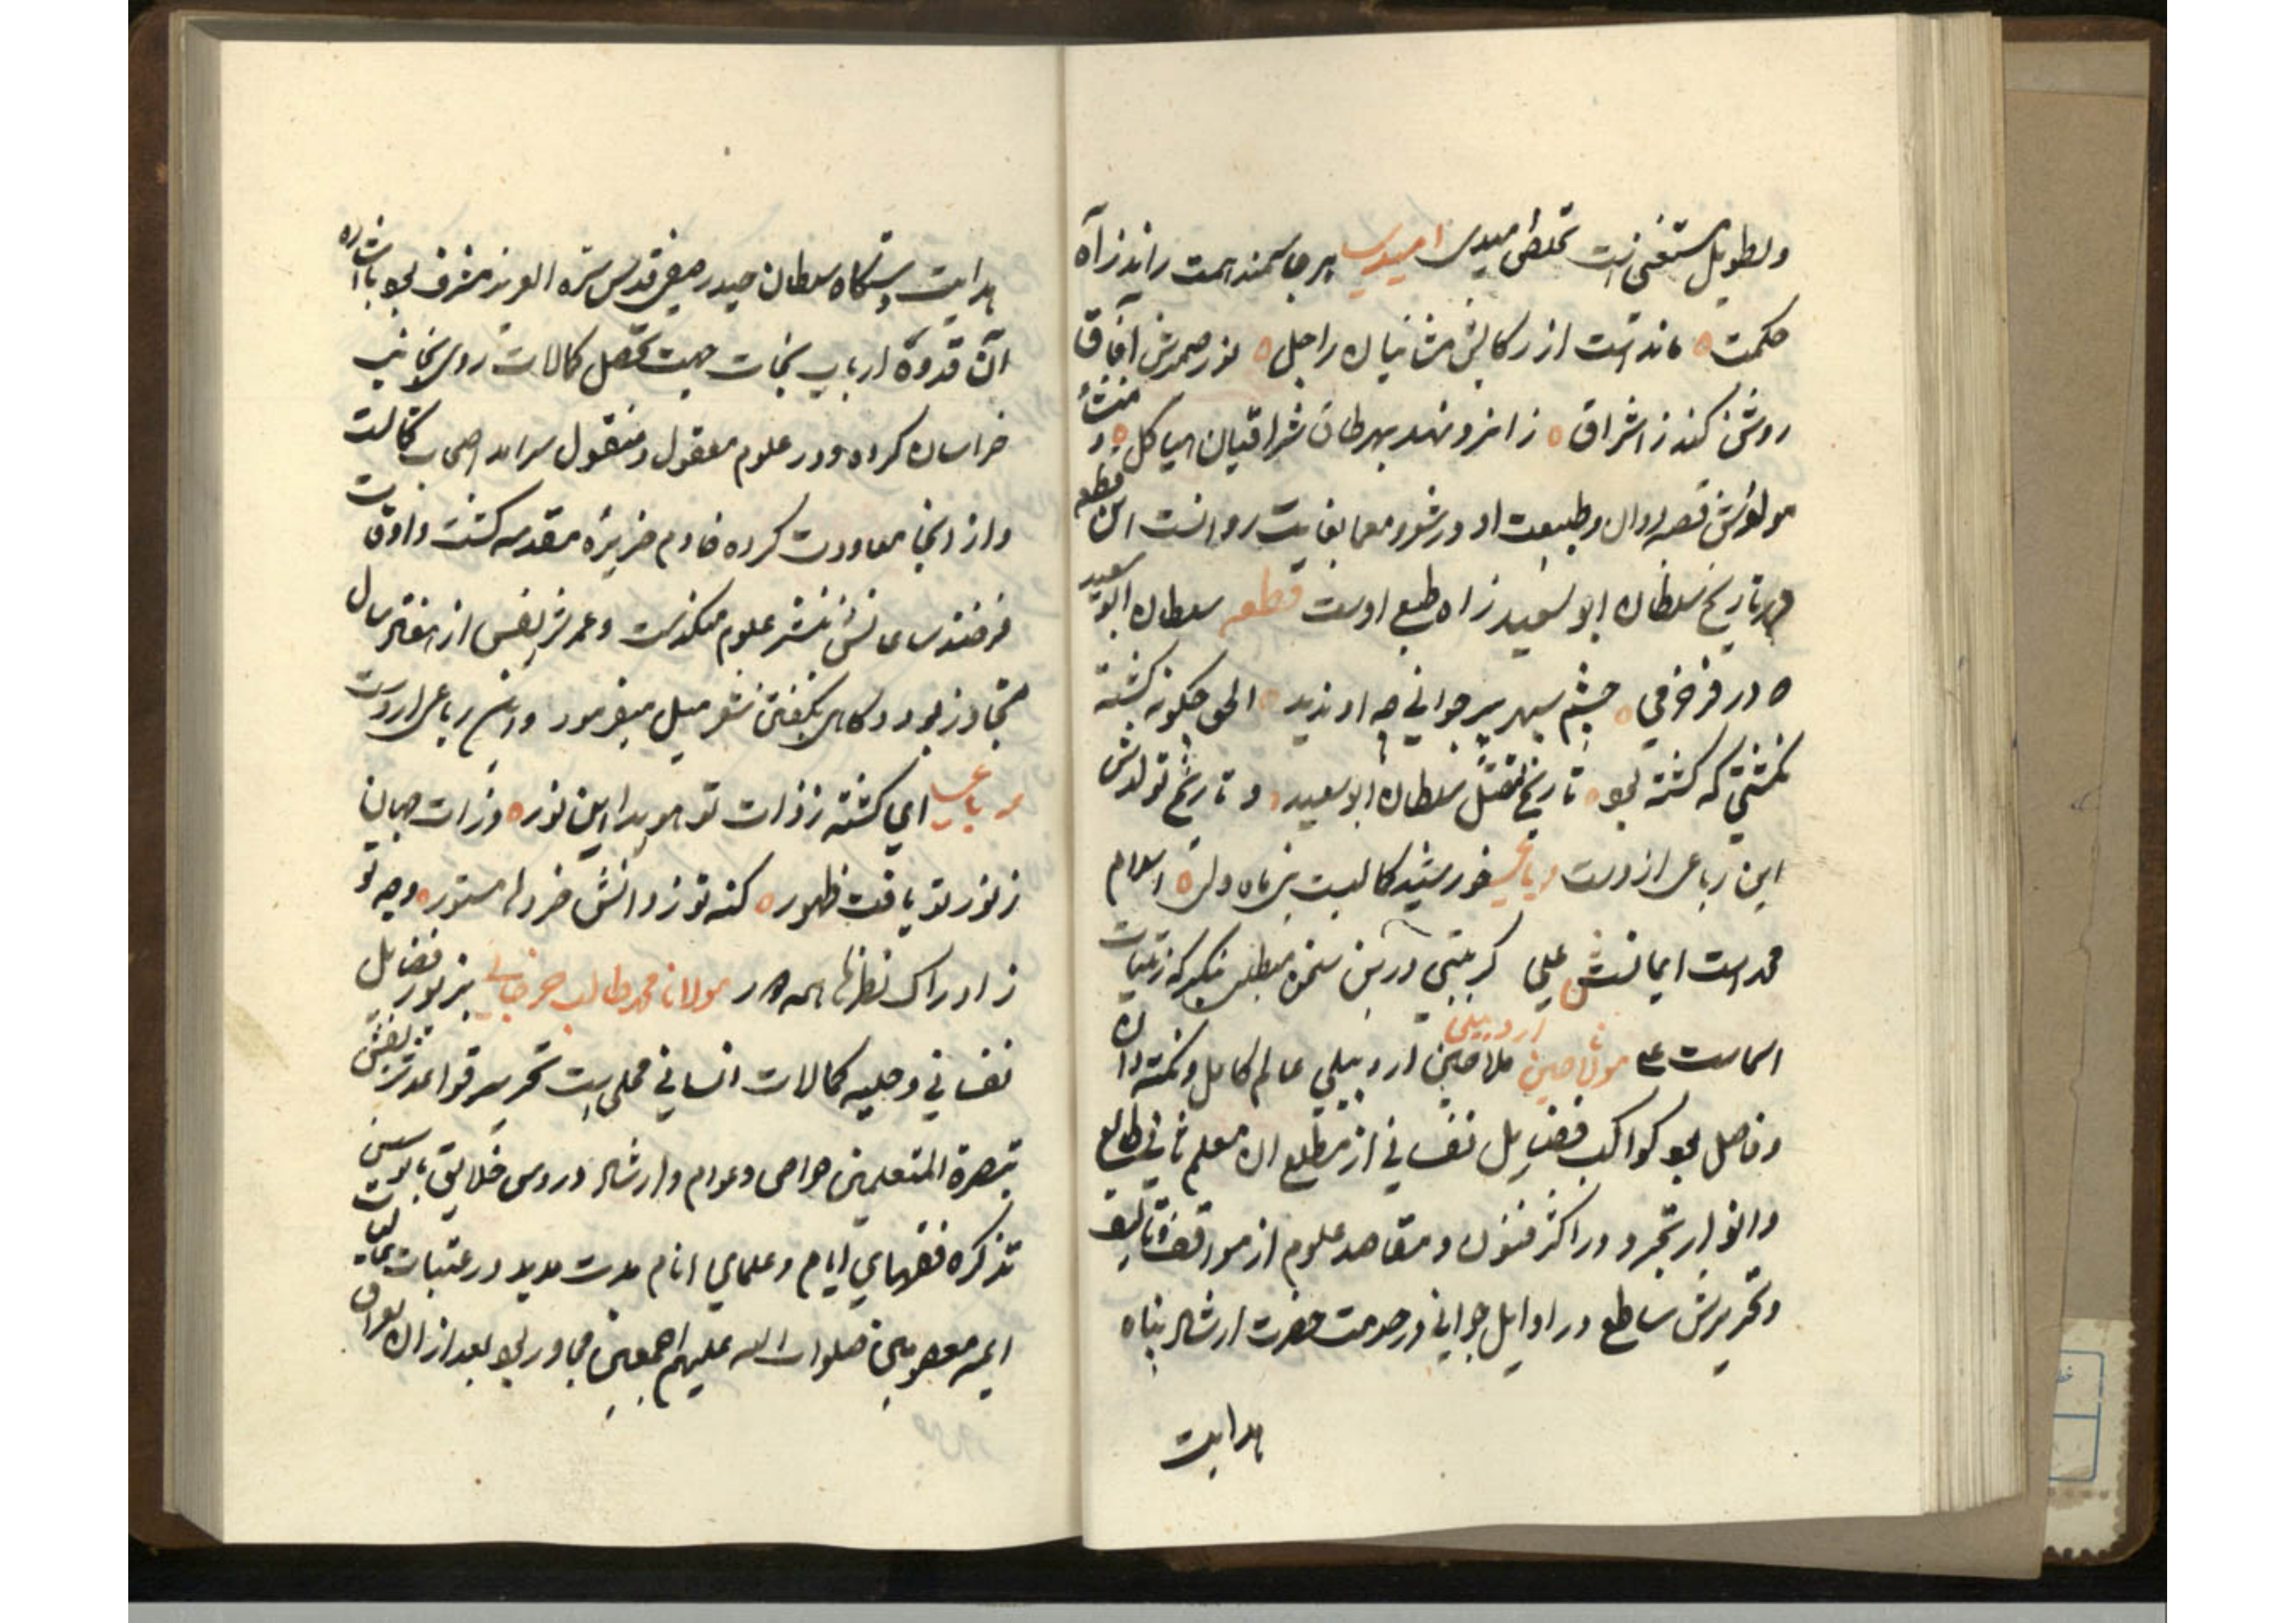 وتطویل مستغنی است تخلص امیدی امیدی هر جا سمند همت راند ز راه
حکمت ه ماند است از رکابش مشائیان راجل ه نور ضمیرش آفاق
روشن کند ز اشراق ه زانرو نهند بهرطان اشراقیان هیاکل ه و منشأ
مولدش قصبه و طبیعت او در شعر و معما بغایت روانست این قطعه
در تاریخ سلطان ابو سعید زاده طبع اوست قطعه سلطان ابو سعید
ه در فر خرمی ه چشم سپهر پیر جوانی چه او ندید ه الحق چگونه کشته
نکشتی که کشته بود ه تاریخ مقتل سلطان ابو سعید ه و تاریخ تولدش
این رباعی ازوست رباعی خورشید کمالست نبی ماه ولی ه اسلام
محمد است ایمانست علی ه گر بینتی درین سخن میطلبی بنگر که ز بینات
اسماست ع مولانا حسین اردبیلی ملا حسین اردبیلی عالم کامل و نکته دان
و فاضل بود کواکب فضایل نفسانی از مطلع آن معلم ثانی طالع
و انوار تجرد در اکثر فنون و مقاصد علوم از مواقف تالیف
و تحریرش ساطع در اوایل جوانی در خدمت حضرت ارشاد پناه
هدایت
هدایت دستگاه سلطان حیدر صفی قدس سره العزیز مشرف بود باشاره
آن قدوه ارباب نجات جهت تحصیل کمالات روی بجانب
خراسان کرده و در علوم معقول و منقول سرآمد اصحاب کمالت
و از آنجا معاودت کرده خادم ضریره مقدسه گشت و اوقات
فرخنده ساعاتش بنشر علوم میگذشت و عمر شریفش از هفتاد سال
متجاوز بود و گاهی بگفتن شعر میل میفرمود و این رباعی اروست
رباعی ای گشته ز ذات تو هویدا این نور ه ذرات جهان
ز نور تو یافت ظهور ه کنه تو ز دانش خرد ها مستور ه وجه تو
ز ادراک نظرها همه دور مولانا محمد طالب بزیور فضایل
نفسانی و حلیه کمالات انسانی محلی است تحریر قواعد شریفش
تبصرة المتعلمین خواص و عوام و ارشاد دروس خلایق
تذکره فقهای ایام و علمای انام مدت مدید در عتبات عالیات
ایمه معصومین صلوات الله علیهم اجمعین مجاور بود بعد از آن بعراق